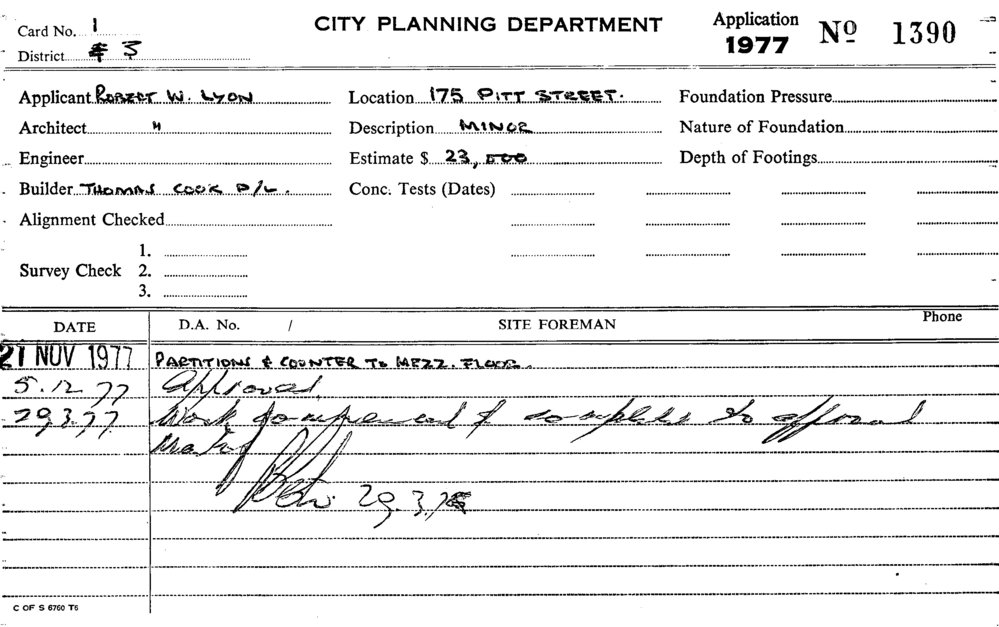 Card No. 1 CITY PLANNING DEPARTMENT Application 1977 Nº 1390
District # 3
Applicant ROBERT W. LYON Location 175 PITT STREET. Foundation Pressure
Architect " Description MINOR Nature of Foundation
Engineer Estimate $ 23,500 Depth of Footings
Builder THOMAS COOK P/L. Conc. Tests (Dates)
Alignment Checked
1.
Survey Check 2.
3.
DATE D.A. No. / SITE FOREMAN Phone
21 NOV 1977 PARTITIONS & COUNTER TO MEZZ. FLOOR.
5.12.77 Approved.
29.3.77. Work commenced & complete to approval
29.3.78
C OF S 6760 T6